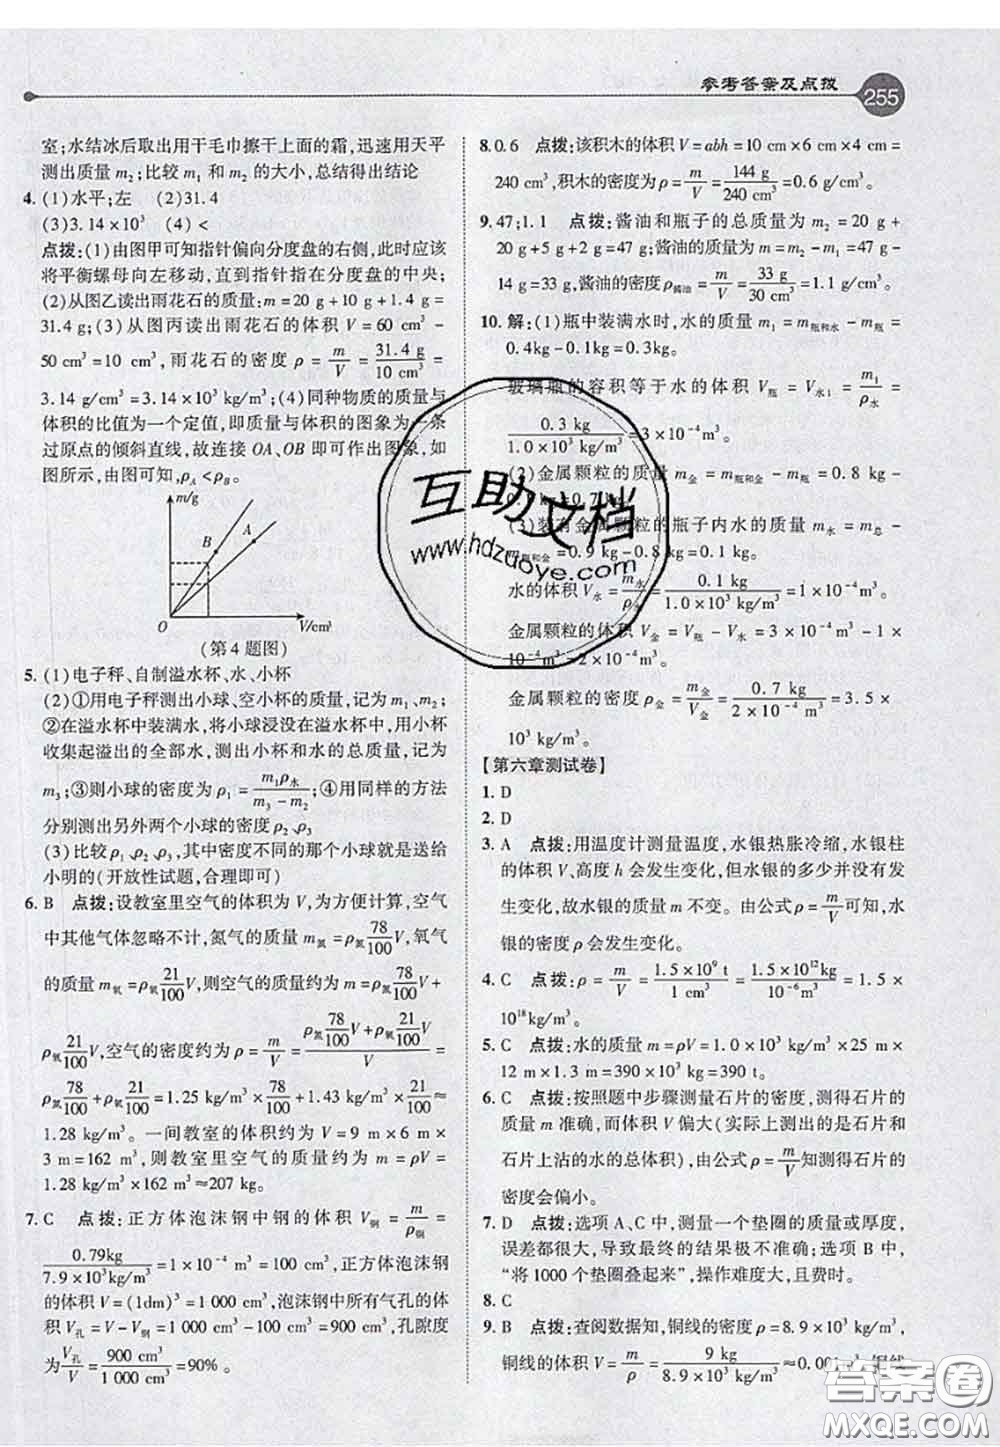 参考答案及点拨
255
室;水结冰后取出用干毛巾擦干上面的霜,迅速用天平
测出质量 m₂;比较 m₁ 和 m₂ 的大小,总结得出结论
4. (1)水平;左 (2)31.4
(3)3.14×10³ (4)<
点拨:(1)由图甲可知指针偏向分度盘的右侧,此时应该
将平衡螺母向左移动,直到指针指在分度盘的中央;
(2)从图乙读出雨花石的质量:m=20 g+10 g+1.4 g=
31.4 g;(3)从图丙读出雨花石的体积 V=60 cm³-
50 cm³=10 cm³,雨花石的密度 ρ=m/V=31.4 g/10 cm³=
3.14 g/cm³=3.14×10³ kg/m³;(4)同种物质的质量与
体积的比值为一个定值,即质量与体积的图象为一条
过原点的倾斜直线,故连接 OA、OB 即可作出图象,如
图所示,由图可知,ρA<ρB。
m/g
B
A
O
V/cm³
(第4题图)
5. (1)电子秤、自制溢水杯、水、小杯
(2)①用电子秤测出小球、空小杯的质量,记为 m₁、m₂
②在溢水杯中装满水,将小球浸没在溢水杯中,用小杯
收集起溢出的全部水,测出小杯和水的总质量,记为
m₃;③则小球的密度 ρ₁=m₁ρ水/(m₃-m₂);④用同样的方法
分别测出另外两个小球的密度 ρ₂、ρ₃
(3)比较 ρ₁、ρ₂、ρ₃,其中密度不同的那个小球就是送给
小明的(开放性试题,合理即可)
6. B 点拨:设教室里空气的体积为 V,为方便计算,空气
中其他气体忽略不计,氮气的质量 m氮=ρ氮78/100V,氧气
的质量 m氧=ρ氧21/100V,则空气的质量约为 m=ρ氮78/100V+
ρ氧21/100V,空气的密度约为 ρ=m/V=(ρ氮78/100V+ρ氧21/100V)/V=
ρ氮78/100+ρ氧21/100=1.25 kg/m³×78/100+1.43 kg/m³×21/100≈
1.28 kg/m³。一间教室的体积约为 V=9 m×6 m×
3 m=162 m³,则教室里空气的质量约为 m=ρV=
1.28 kg/m³×162 m³≈207 kg。
7. C 点拨:正方体泡沫钢中钢的体积 V钢=m/ρ钢=
0.79kg/7.9×10³kg/m³=1×10⁻⁴ m³=100 cm³,正方体泡沫钢
的体积 V=(1dm)³=1 000 cm³,泡沫钢中所有气孔的体
积 V孔=V-V钢=1 000 cm³-100 cm³=900 cm³,孔隙度
为V孔/V=900 cm³/1 000 cm³=90%。
8. 0.6 点拨:该积木的体积 V=abh=10 cm×6 cm×4 cm=
240 cm³,积木的密度为 ρ=m/V=144 g/240 cm³=0.6 g/cm³。
9. 47;1.1 点拨:酱油和瓶子的总质量为 m₂=20 g+
20 g+5 g+2 g=47 g;酱油的质量 m=m₂-m₁=47 g-
14 g=33 g,酱油的密度 ρ酱油=m/V=33 g/30 cm³=1.1 g/cm³。
10. 解:(1)瓶中装满水时,水的质量 m₁=m瓶和水-m瓶=
0.4kg-0.1kg=0.3kg。
玻璃瓶的容积等于水的体积 V瓶=V水1=m₁/ρ水=
0.3 kg/1.0×10³kg/m³=3×10⁻⁴m³。
(2)金属颗粒的质量 m金=m瓶和金-m瓶=0.8 kg-
0.1kg=0.7kg。
(3)装有金属颗粒的瓶子内水的质量 m水=m总-
m瓶和金=0.9 kg-0.8 kg=0.1 kg。
水的体积 V水=m水/ρ水=0.1 kg/1.0×10³ kg/m³=1×10⁻⁴ m³。
金属颗粒的体积 V金=V瓶-V水=3×10⁻⁴ m³-1×
10⁻⁴m³=2×10⁻⁴ m³。
金属颗粒的密度 ρ金=m金/V金=0.7 kg/2×10⁻⁴ m³=3.5×
10³ kg/m³。
【第六章测试卷】
1. D
2. D
3. A 点拨:用温度计测量温度,水银热胀冷缩,水银柱
的体积 V、高度 h 会发生变化,但水银的多少并没有
发生变化,故水银的质量 m 不变。由公式 ρ=m/V可知,水
银的密度 ρ 会发生变化。
4. C 点拨:ρ=m/V=1.5×10⁹ t/1 cm³=1.5×10¹² kg/10⁻⁶ m³=1.5×
10¹⁸kg/m³。
5. C 点拨:水的质量 m=ρV=1.0×10³ kg/m³×25 m×
12 m×1.3 m=390×10³ kg=390 t。
6. C 点拨:按照题中步骤测量石片的密度,测得石片的
质量 m 准确,而体积 V 偏大(实际上测出的是石片和
石片上沾的水的总体积),由公式 ρ=m/V知测得石片的
密度会偏小。
7. D 点拨:选项 A、C 中,测量一个垫圈的质量或厚度,
误差都很大,导致最终的结果极不可靠;选项 B 中,
“将 1000 个垫圈叠起来”,操作难度大,且费时。
8. C
9. B 点拨:查阅数据知,铜线的密度 ρ=8.9×10³ kg/m³,
铜线的体积 V=m/ρ=9 kg/8.9×10³ kg/m³≈0.001m³,铜线
互助文档
www.hdzuoye.com
答案圈
MXQE.COM